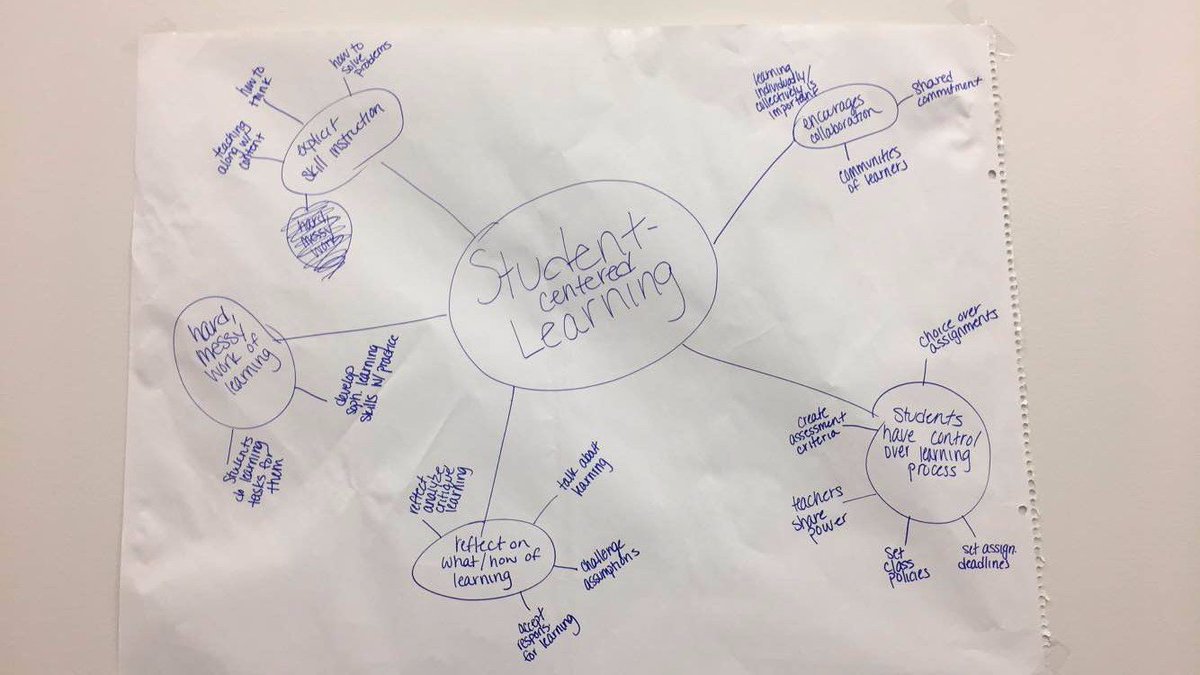 Student-
centered
Learning
explicit
skill instruction
how to
think
how to
solve
problems
teaching
along w/
content
hard,
messy
work
encourages
collaboration
learning
individually/
collectively is
important
shared
commitment
communities
of learners
hard,
messy
work of
learning
develop
soph. learning
skills w/ practice
students
do learning
tasks for
them
reflect on
what/how of
learning
reflect
analyze
critique
learning
talk about
learning
challenge
assumptions
accept
respons.
for learning
Students
have control
over learning
process
choice over
assignments
create
assessment
criteria
teachers
share
power
set
class
policies
set assign.
deadlines